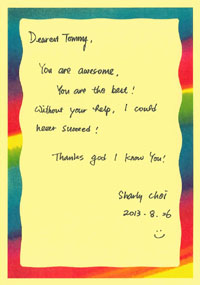 Dearest Tommy,
You are awesome,
You are the best!
Without your help, I could
never succeed!
Thanks god I know You!
Sharly Choi
2013-8-26